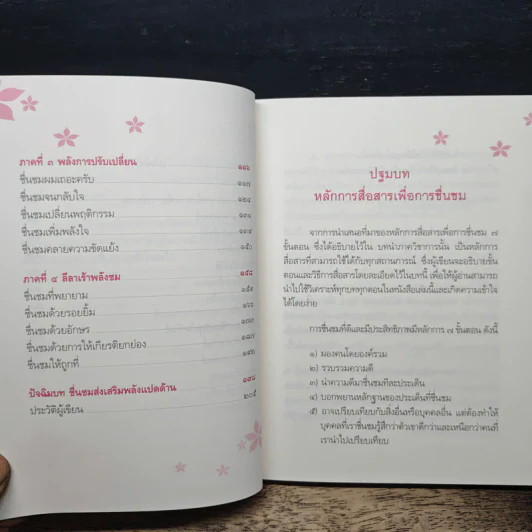 ภาคที่ ๓ พลังการปรับเปลี่ยน ๑๑๖
ชื่นชมผมเถอะครับ ๑๑๗
ชื่นชมจนกลับใจ ๑๒๔
ชื่นชมเปลี่ยนพฤติกรรม
ชื่นชมเพิ่มพลังใจ
ชื่นชมคลายความขัดแย้ง ๑๕๐
ภาคที่ ๔ ลีลาเร้าพลังชม ๑๕๘
ชื่นชมที่พยายาม ๑๕๙
ชื่นชมด้วยรอยยิ้ม
ชื่นชมด้วยอักษร
ชื่นชมด้วยการให้เกียรติยกย่อง ๑๘๗
ชื่นชมให้ถูกที่
ปัจฉิมบท ชื่นชมส่งเสริมพลังแปดด้าน ๑๙๘
ประวัติผู้เขียน ๒๐๕
ปฐมบท
หลักการสื่อสารเพื่อการชื่นชม
จากการนำเสนอที่มาของหลักการสื่อสารเพื่อการชื่นชม ๗
ขั้นตอน ซึ่งได้อธิบายไว้ใน บทนำภาควิชาการนั้น เป็นหลักการ
สื่อสารที่สามารถใช้ได้กับทุกสถานการณ์ ซึ่งผู้เขียนจะอธิบายขั้น
ตอนและวิธีการสื่อสารโดยละเอียดไว้ในบทนี้ เพื่อให้ผู้อ่านสามารถ
นำไปใช้วิเคราะห์ทุกบททุกตอนในหนังสือเล่มนี้และเกิดความเข้าใจ
ได้โดยง่าย
การชื่นชมที่ดีและมีประสิทธิภาพมีหลักการ ๗ ขั้นตอน ดังนี้
๑) มองคนโดยองค์รวม
๒) รวบรวมความดี
๓) นำความดีมาชื่นชมทีละประเด็น
๔) บอกพยานหลักฐานของประเด็นที่ชื่นชม
๕) อาจเปรียบเทียบกับสิ่งอื่นหรือบุคคลอื่น แต่ต้องทำให้
บุคคลที่เราชื่นชมรู้สึกว่าตัวเขาดีกว่าและเหนือกว่าคนที่
เรานำไปเปรียบเทียบ